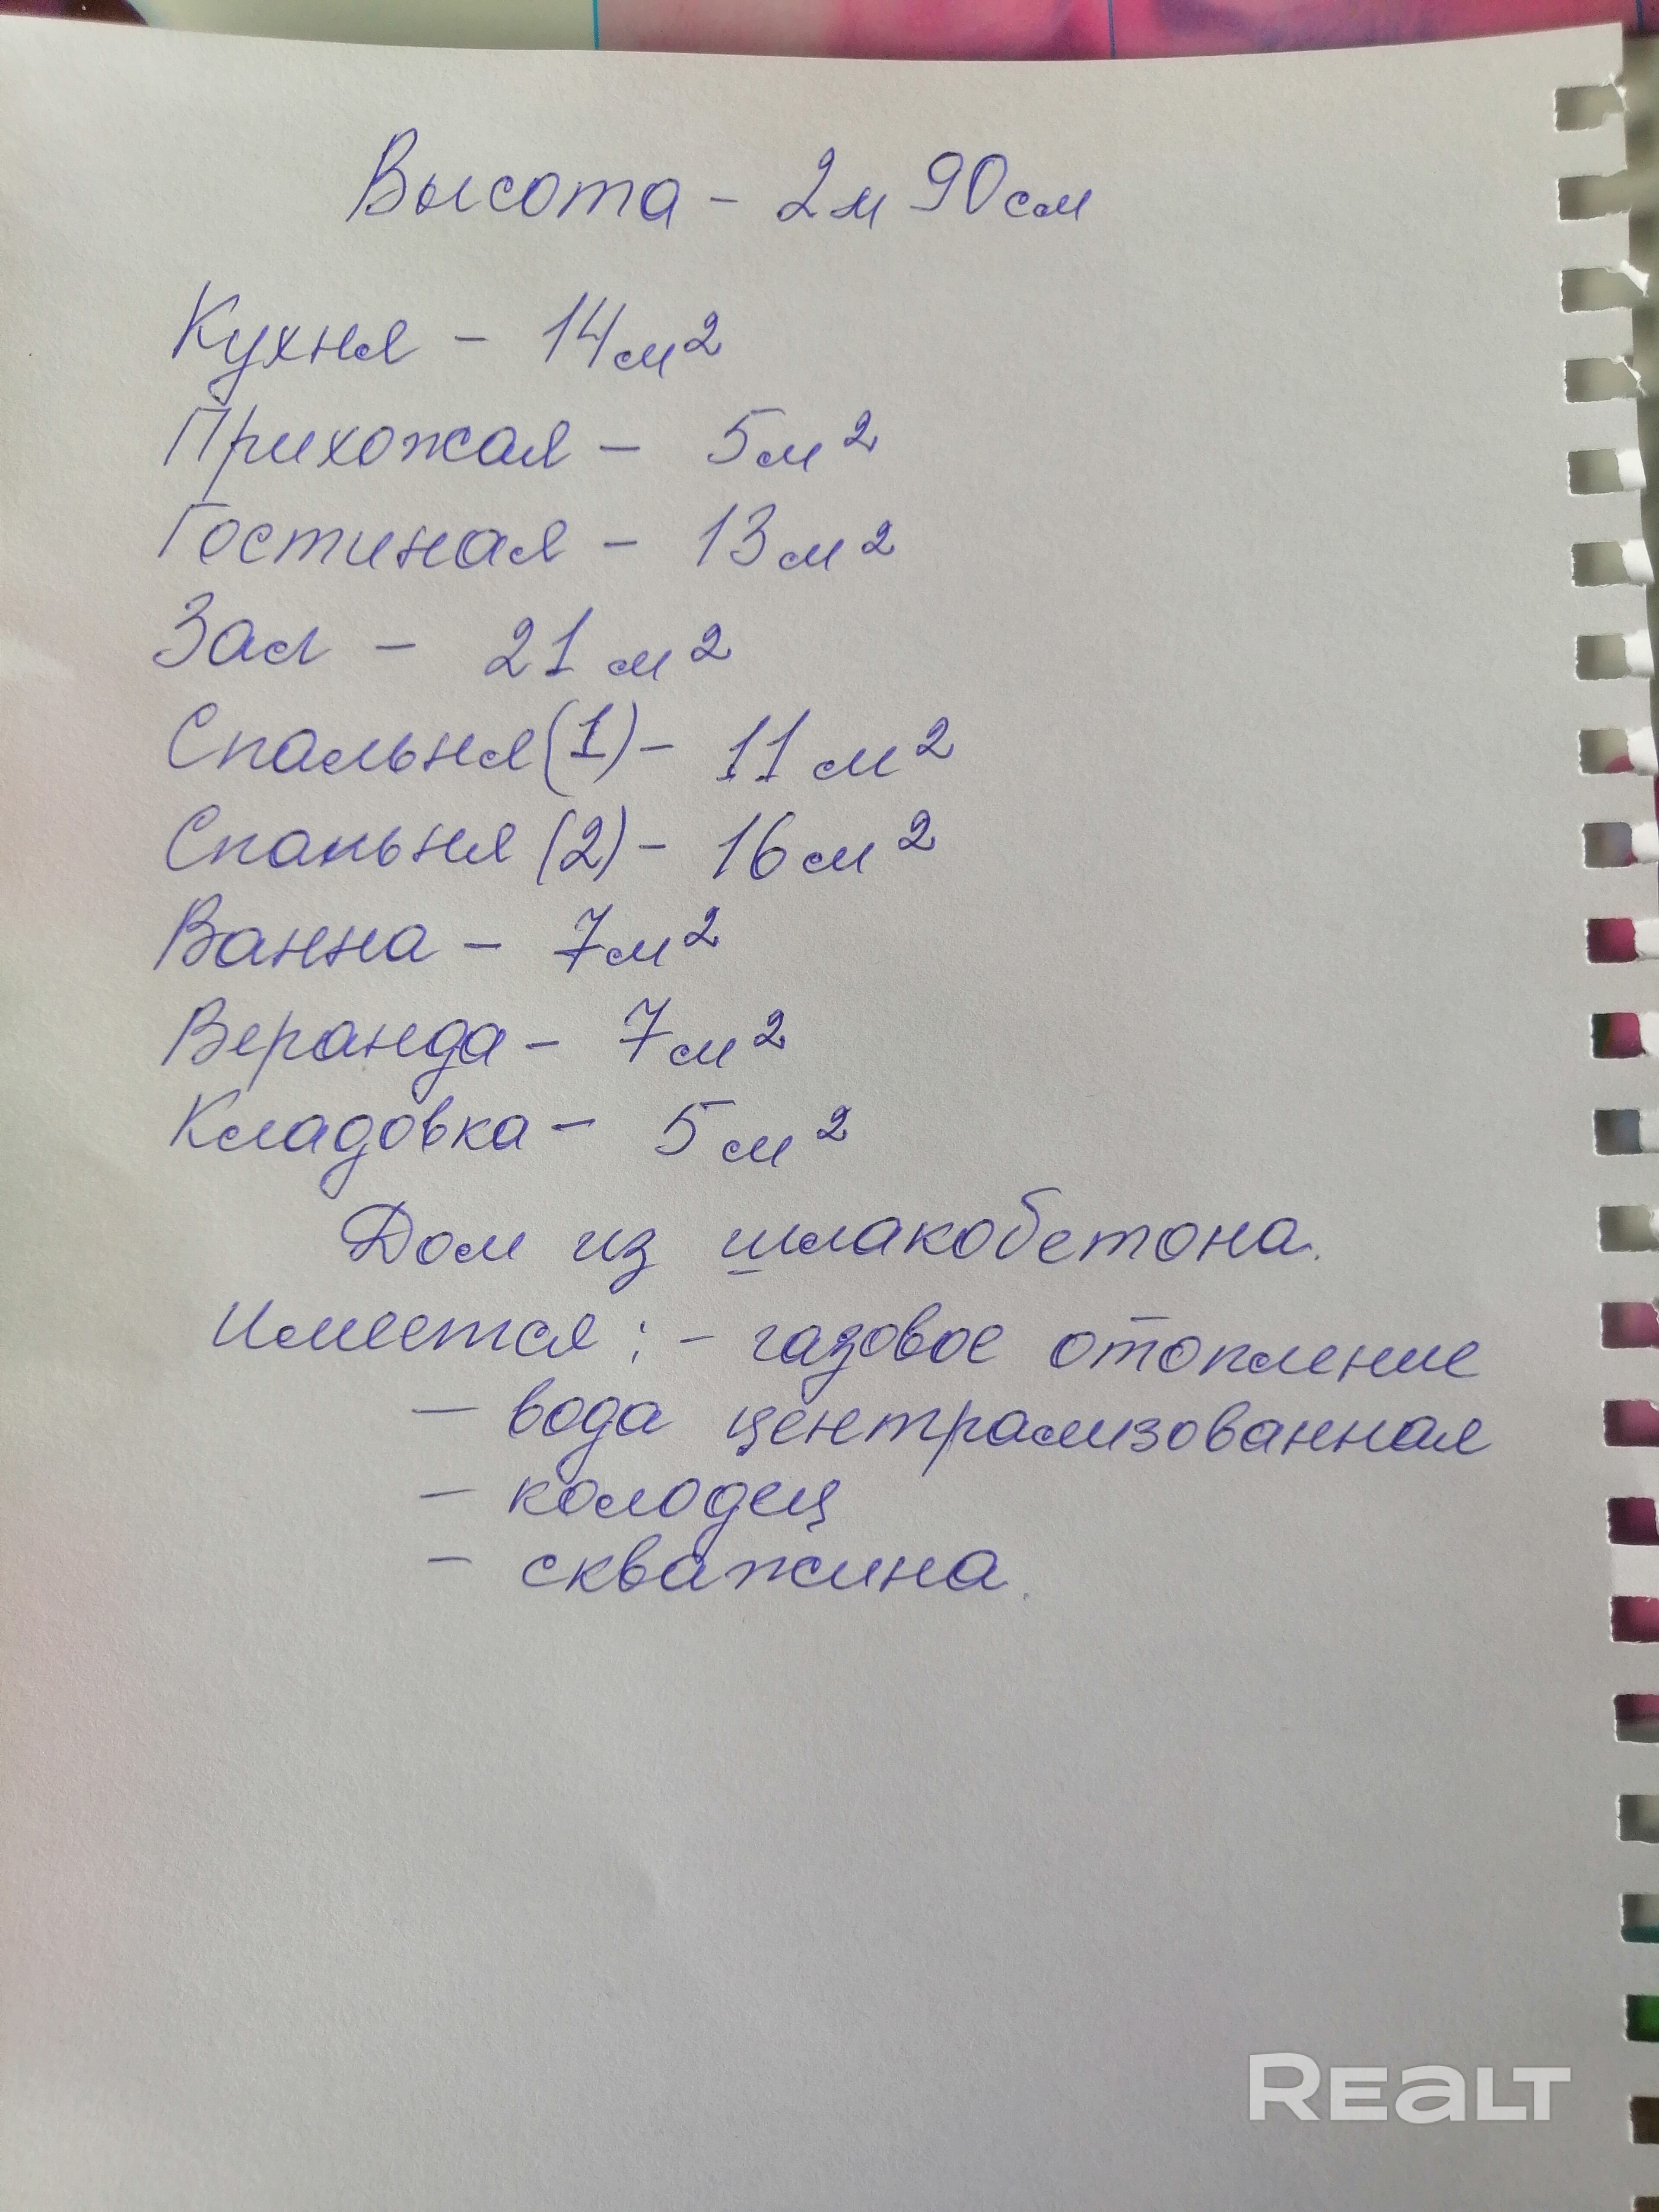 Высота - 2м 90см
Кухня - 14м²
Прихожая - 5м²
Гостиная - 13м²
Зал - 21м²
Спальня(1)- 11м²
Спальня(2)- 16м²
Ванна - 7м²
Веранда - 7м²
Кладовка - 5м²
Дом из шлакобетона.
Имеется: - газовое отопление
- вода централизованная
- колодец
- скважина.
REALT